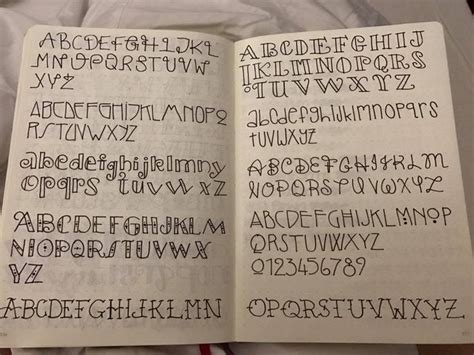 ABCDEFGHIJKL
MNOPQRSTUVW
XYZ
ABCDEFGHIJKLMNOPQ
RSTUVWXYZ
abcdefghijklmny
opqrs tuvw xz
ABCDEFGHIJKLM
NIOPQRSTUVWX
YZ
ABCDEFGHIJKLMN
ABCDEFGHIJ
IJKLMNOPQRS
TUVWXYZ
abcdefghijklmnopqrs
tuvwxyz
ABCDEFGHIJKLM
NOPQRSTUVWXYZ
ABCDEFGHIJKLMNOP
QRSTUVWXYZ
0123456789
OPQRSTUVWXYZ